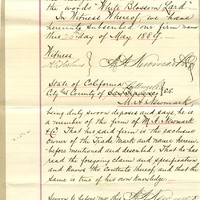 the words "White Blossom Lard"
In Witness Whereof we have
hereunto subscribed our firm name
this 25 day of May 1889.
Witness
State of California
City and County of ss.
M. A. Newmark
being duly sworn deposes and says, he is
a member of the firm of M. A. Newmark
& Co. That said firm is the exclusive
owner of the Trade Mark and name herein
before mentioned and described. That he has
read the foregoing claim and specification,
and knows the contents thereof, and that the
same is true of his own knowledge.